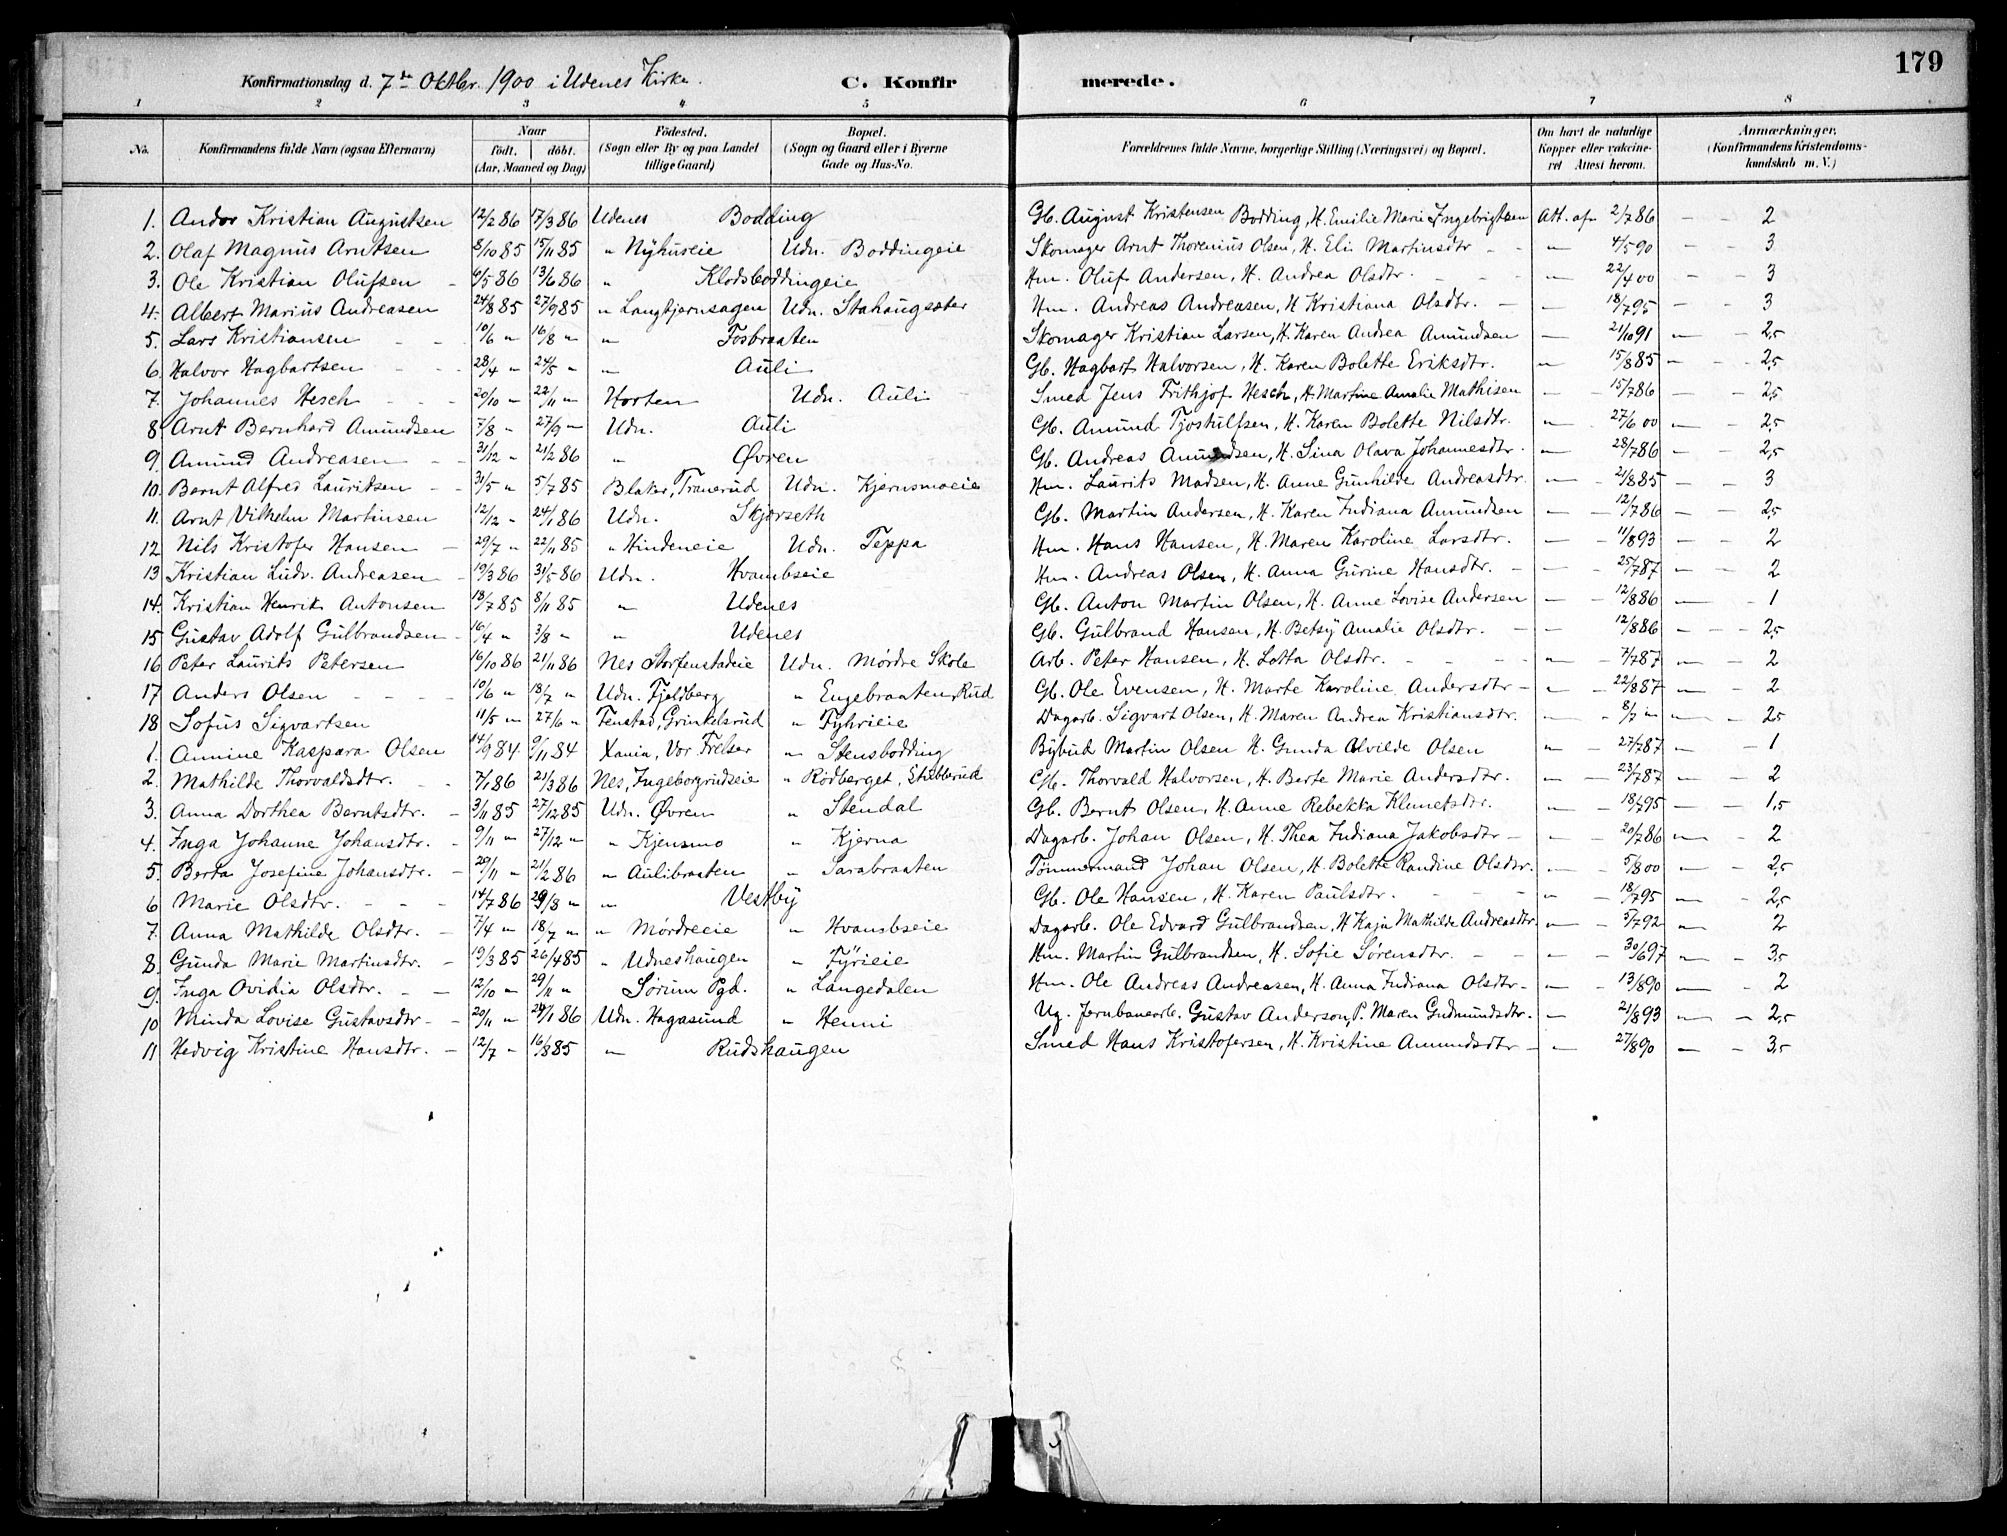 179
Konfirmationsdag d. 7de Oktbr. 1900 i Udenes Kirke. C. Konfirmerede.
1 2 3 4 5 6 7 8
No. Konfirmandens fulde Navn (ogsaa Efternavn) Naar født, døbt. (Aar, Maaned og Dag) Födested. (Sogn eller By og paa Landet tillige Gaard) Bopæl. (Sogn og Gaard eller i Byerne Gade og Hus-No. Forældrenes fulde Navne, borgerlige Stilling (Næringsvei) og Bopæl. Om havt de naturlige Kopper eller vaccineret Attest herom. Anmærkninger. (Konfirmandens Kristendomskundskab m. V.)
1. Andor Kristian Augustsen 12/2 86 17/3 86 Udenes Bodding Gb. August Kristensen Bodding, H. Emilie Marie Ingebrigtsen Att. af 2/7 86 — — 2
2. Olaf Magnus Arntsen 8/10 85 15/11 85 " Nyhuseie Udn. Boddingeie Skomager Arnt Thorenius Olsen, H. Eli Martinsdtr — " 4/5 90 — 3
3. Ole Kristian Olufsen 6/5 86 13/6 86 " Klodsboddingeie Hm. Oluf Andersen, H. Andrea Olsdtr. — " 22/4 00 — 3
4. Albert Marius Andreasen 24/8 85 27/9 85 " Langbjernsagen Udn. Stahaugsæter Hm. Andreas Andreasen, H Kristiana Olsdtr. — 18/7 95 — — 3
5. Lars Kristiansen 10/6 " 16/8 " " Fosbraaten Skomager Kristian Larsen, H. Karen Andrea Amundsen — 21/10 91 " — 2,5
6. Halvor Hagbartsen 28/4 " 24/5 " " Auli Gb. Hagbart Halvorsen, H. Karen Bolette Eriksdtr. " 15/8 85 " — 2,5
7. Johannes Hesch 20/10 " 22/11 " Horten Udn. Auli Smed Jens Frithjof Hesch, H. Martine Amalie Mathisen — 15/7 86 — 2,5
8. Arnt Bernhard Amundsen 7/8 " 27/9 " Udn. Auli Gb. Amund Tjostulfsen, H. Karen Bolette Nilsdtr. " 27/6 00 " — 2,5
9. Amund Andreasen 31/12 " 21/2 86 " Øvren Gb. Andreas Amundsen, H. Sina Olava Johannesdtr — 28/7 86 — 2,5
10. Bernt Alfred Lauritsen 31/5 " 5/7 85 Blaker, Tranerud Udn. Kjernsmoeie Hm. Laurits Madsen, H. Anne Gunhilde Andreasdtr. " — 21/8 85 — 3
11. Arnt Vilhelm Martinsen 12/12 " 24/1 86 Udn. Skjørseth Gb. Martin Andersen, H. Karen Indiana Amundsen — — 12/7 86 — — 2,5
12 Nils Kristofer Hansen 29/7 " 22/11 85 " Hindeneie Udn. Teppa Hm. Hans Hansen, H. Maren Karoline Larsdtr. — — 11/8 93 — — 2
13 Kristian Ludv. Andreasen 19/3 86 31/5 86 Udn. Hvambseie Hm. Andreas Olsen, H. Anna Gurine Hansdtr. — — 25/7 87 — — 2
14. Kristian Henrik Antonsen 13/7 85 8/11 85 " Udenes Gb. Anton Martin Olsen, H. Anne Lovise Andersen — — 12/8 86 — — 1
15 Gustav Adolf Gulbrandsen 16/4 " 3/8 " " Udenes Gb. Gulbrand Hansen, H. Betsy Amalie Olsdtr. — — 12/8 86 — — 2,5
16 Peter Laurits Petersen 16/10 86 21/11 86 Nes Storfenstadeie Udn. Mørdre Skole Arb. Peter Hansen, H. Lotta Olsdtr. — — " 7/7 87 — 2
17 Anders Olsen 10/6 " 18/7 " Udn. Fjeldberg " Engebraaten, Rud Gb. Ole Evensen, H. Marte Karoline Andersdtr — " 22/8 87 " — 2
18 Sofus Sigvartsen 11/5 " 27/6 " Fenstad, Grinkelsrud " Fyhrieie Dagarb. Sigvart Olsen, H. Maren Andrea Kristiansdtr. — " 8/7 " — 2,5
1. Annine Kaspara Olsen 14/9 84 9/11 84 Xania, Vor Frelser " Stensbodding Bybud Martin Olsen H. Gunda Alvilde Olsen " — 27/7 87 — 1
2. Mathilde Thorvaldsdtr. 7/1 86 21/3 86 Nes, Ingeborgrudseie " Rödberget, Stubberud Gb. Thorvald Halvorsen, H. Berte Marie Andersdtr. " — 23/7 87 — — 2
3. Anna Dorthea Berntsdtr. 3/11 85 27/12 85 Udn. Øvren " Stendal Gb. Bernt Olsen, H. Anne Rebekka Klemetsdtr. " — 18/7 95 — — 1,5
4. Inga Johanne Johansdtr. 9/11 " 27/12 " " Kjensmo " Kjerna Dagarb. Johan Olsen, H. Thea Indiana Jakobsdtr — — 20/7 86 " — 2
5. Berta Josefine Johansdtr. 29/11 " 21/2 86 " Aulibraaten " Sarabraaten Tømmermand Johan Olsen, H. Bolette Randine Olsdtr. — 5/8 00 — — 2,5
6 Marie Olsdtr. 14/7 86 29/8 " " Vestby Gb. Ole Hansen, H. Karen Paulsdtr. " — 18/7 95 " — 2,5
7. Anna Mathilde Olsdtr. 7/4 " 18/7 " " Mørdreeie " Hvambseie Dagarb. Ole Edvard Gulbrandsen, H Kaja Mathilde Andreasdtr. " — 5/7 92 " 2
8. Gunda Marie Martinsdtr. 19/3 85 26/4 85 " Udneshaugen " Fyrieie Hm. Martin Gulbrandsen, H. Sofie Sørensdtr. — — " — 30/6 97 " — 3,5
9. Inga Ovidia Olsdtr. 12/10 " 29/11 " Sørum Pgd. " Langedalen Hm. Ole Andreas Andreasen, H. Anna Indiana Olsdtr — — 13/8 90 — 2
10 Minda Lovise Gustavsdtr 20/11 " 24/1 86 Udn. Hagasund " Henni Ug. Jernbanearb. Gustav Anderson, P. Maren Gudmundsdtr. — 21/8 93 " — 2,5
11 Hedvig Kristine Hansdtr. 12/7 " 16/8 85 " Rudshaugen Smed Hans Kristofersen, H. Kristine Amundsdtr — " 27/8 90 — — 3,5